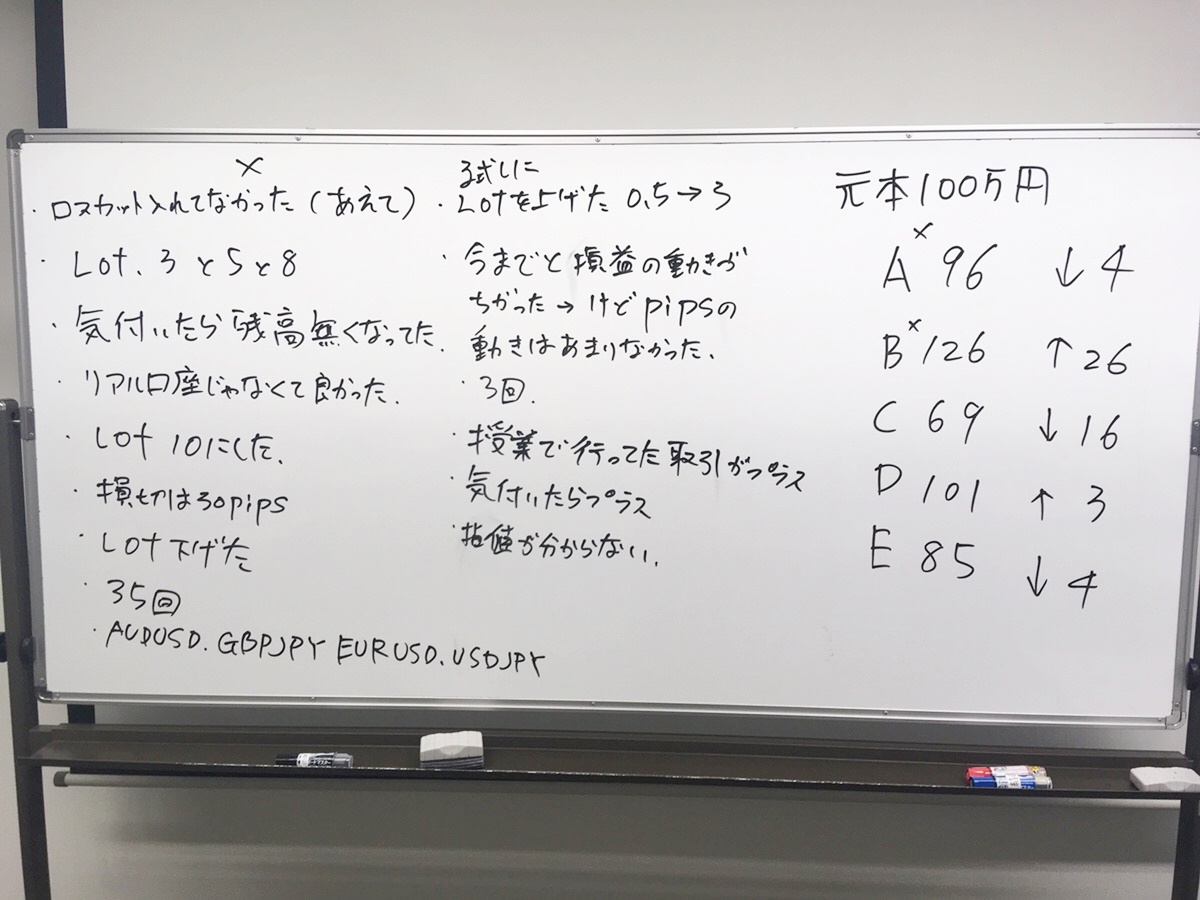 ×
・ロスカット入れてなかった（あえて）
・Lot、3と5と8
・気付いたら残高無くなってた.
・リアル口座じゃなくて良かった.
・Lot 10にした、
・損切は30pips
・Lot下げた
・35回
・AUDUSD. GBPJPY EURUSD. USDJPY
試しに
・Lotを上げた 0.5→3
・今までと損益の動きが
ちがった→けどpipsの
動きはあまりなかった、
・3回.
・授業で行ってた取引がプラス
・気付いたらプラス
・指値が分からない.
元本100万円
A× 96 ↓4
B× 126 ↑26
C 69 ↓16
D 101 ↑3
E 85 ↓4